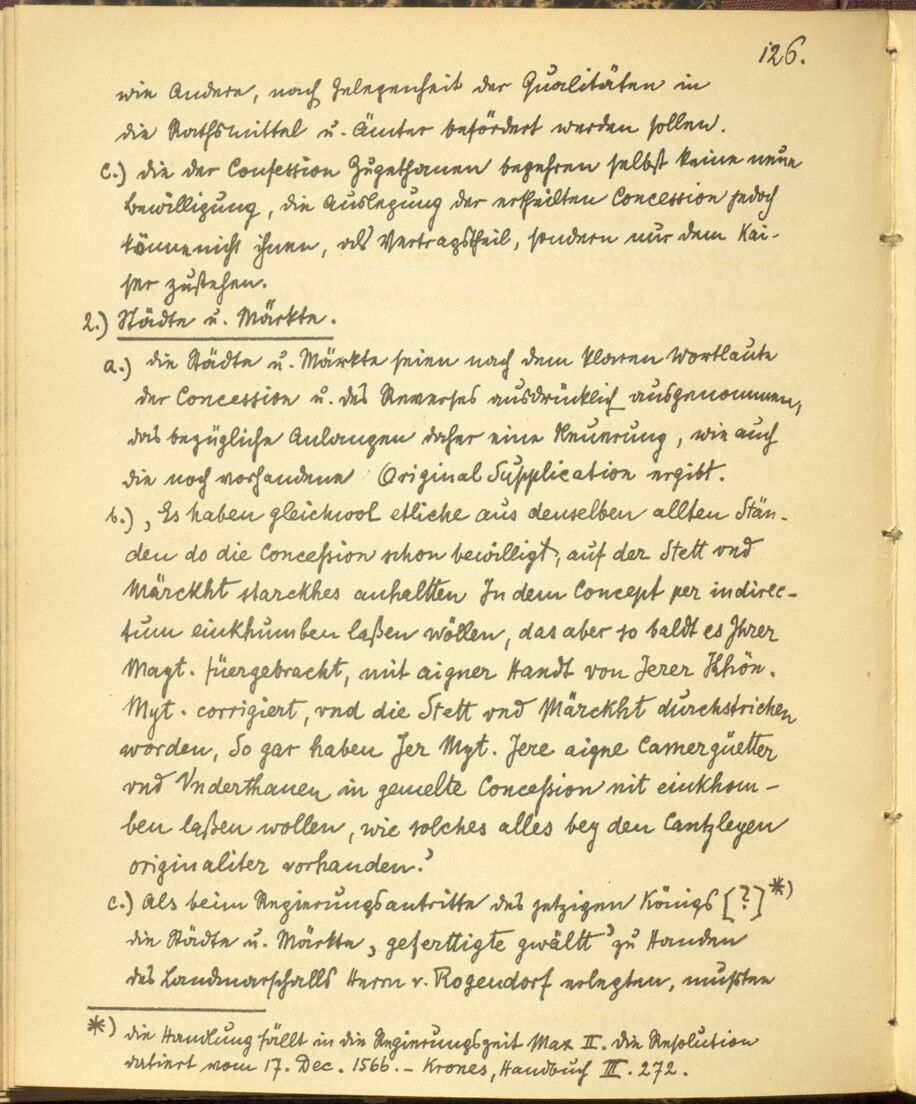 126.
wie Andere, nach Gelegenheit der Qualitäten in
die Rathsmittel u. Ämter befördert werden sollen.
c.) die der Confession Zugethanen begehren selbst keine neue
Bewilligung, die Auslegung der ertheilten Concession jedoch
könne nicht ihnen, als Vertragstheil, sondern nur dem Kai-
ser zustehen.
2.) Städte u. Märkte.
a.) die Städte u. Märkte seien nach dem klaren Wortlaute
der Concession u. des Reverses ausdrücklich ausgenommen,
das bezügliche Anlangen daher eine Neuerung, wie auch
die noch vorhandene Original Supplication ergibt.
b.) „Es haben gleichwol etliche aus denselben allten Stän-
den do die Conceßion schon bewilligt, auf der Stett vnd
Märckht starckhes anhaltten In dem Concept per indirec-
tum einkhumben laßen wöllen, das aber so baldt es Ihrer
Mayt. füergebracht, mit aigner Handt von Jerer Khön.
Myt. corrigiert, vnd die Stett vnd Märckht durchstrichen
worden, So gar haben Jer Myt. Jere aigne Camergüetter
vnd Vnderthanen in gemelte Conceßion nit einkhom-
ben laßen wollen, wie solches alles bey den Cantzleyen
originaliter vorhanden.“
c.) Als beim Regierungsantritte des jetzigen Königs [?] *)
die Städte u. Märkte „geferttigte gwällt“ zu Handen
des Landmarschalls Herrn v. Rogendorf erlegten, mußten
*) die Handlung fällt in die Regierungszeit Max II. die Resolution
datiert vom 17. Dec. 1566. – Krones, Handbuch III. 272.